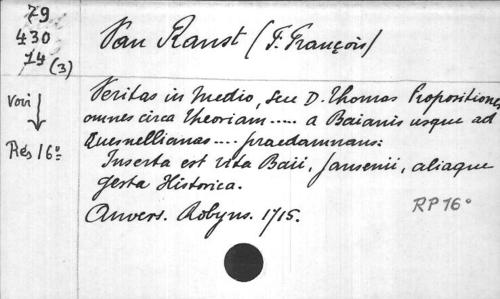 79
430
14 (3)
Van Ranst (F. François)
Voir
Rés 16°
Veritas in medio, seu D. Thomas Propositiones
omnes circa theoriam ..... a Baianis usque ad
Quesnellianas .... praedamnans:
Inserta est vita Baii, Jansenii, aliaque
gesta Historica.
Anvers. Robyns. 1715.
RP 16°